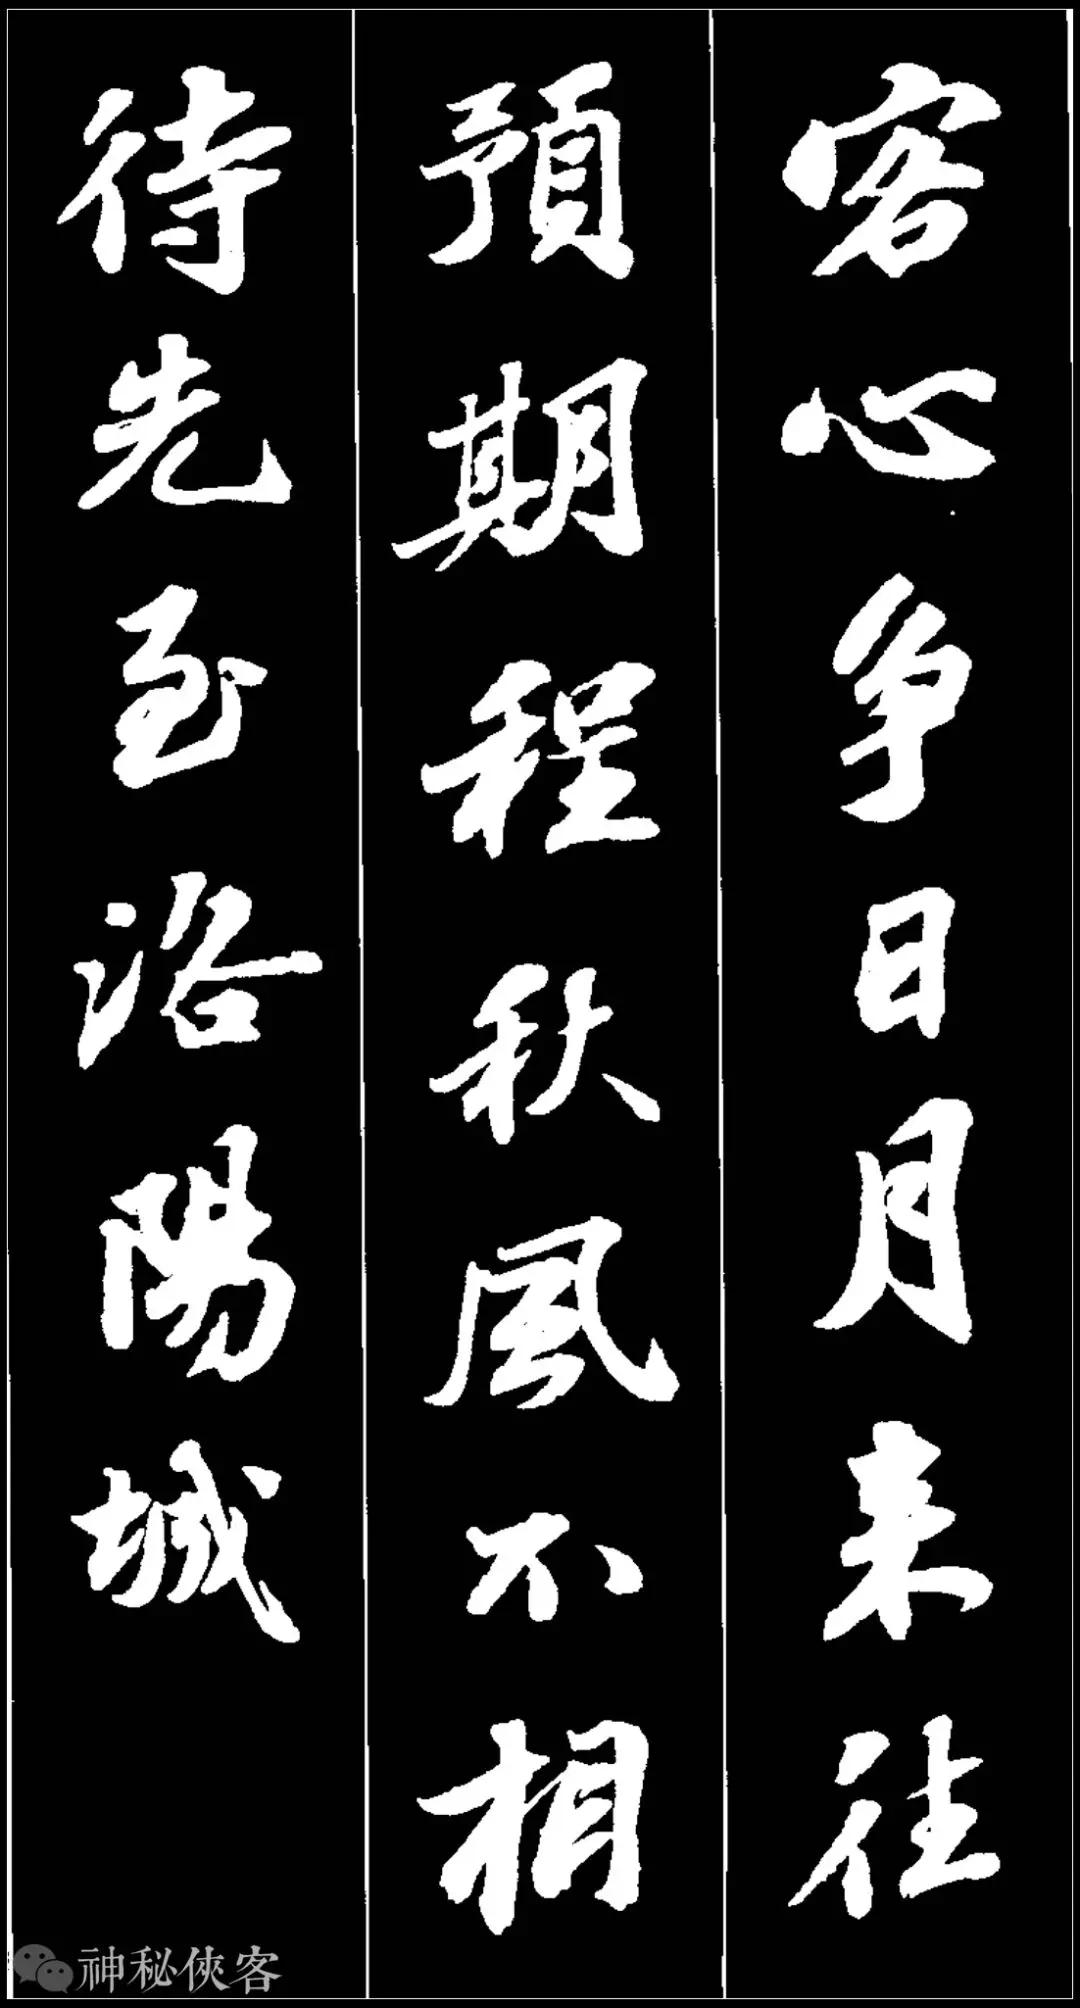 客心争日月来往
預期程秋風不相
待先至洛陽城
神秘俠客